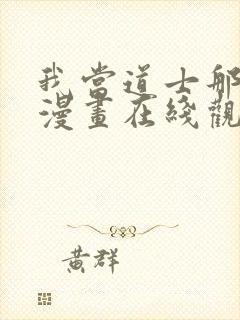 我当道士那
漫畫在綫觀
黃群